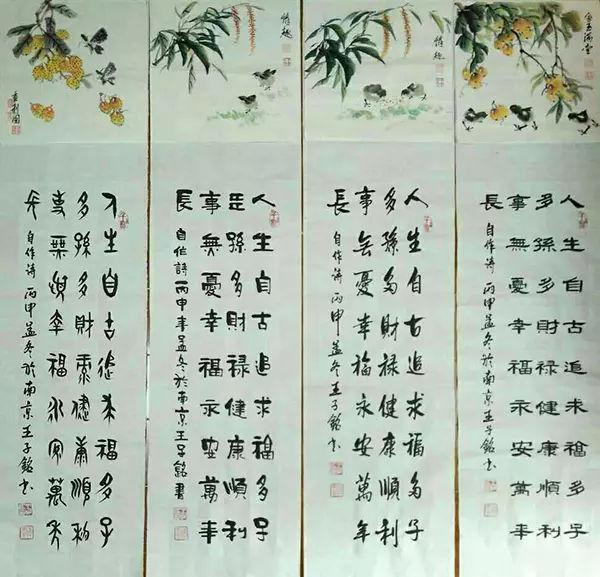 金玉滿堂
人生自古追求福多子
多孫多財祿健康順利
事無憂幸福永安萬年
長
自作詩 丙申孟冬於南京王子銘書
情趣
人生自古追求福多子
多孫多財祿健康順利
事無憂幸福永安萬年
長
自作詩 丙申孟冬王子銘書
情趣
人生自古追求福多子
孫多財祿健康順利
事無憂幸福永安萬年
長
自作詩丙申年孟冬於南京王子銘書
人生自古追求福多子
多孫多財祿健康順利
事無憂幸福永安萬年
長
自作詩 丙申孟冬於南京王子銘書